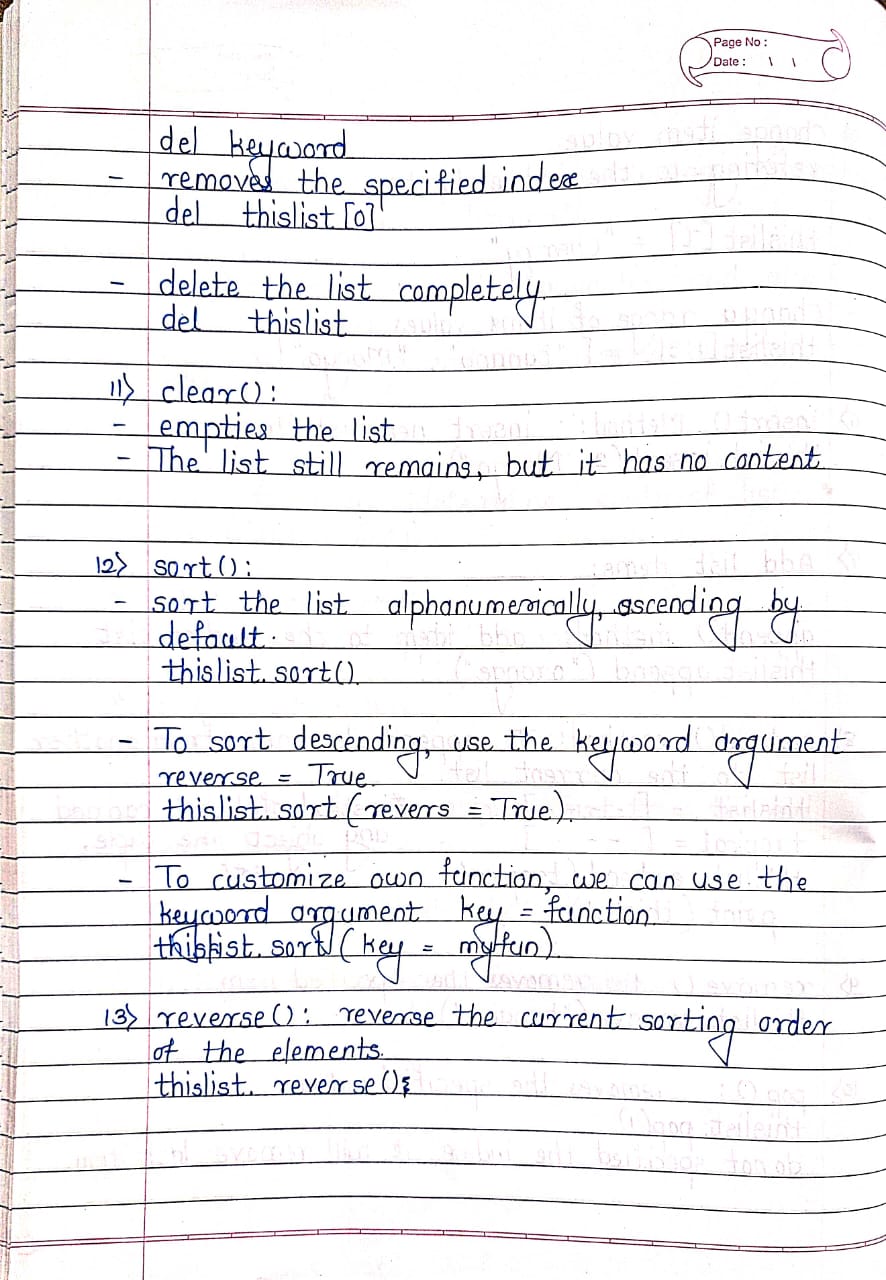 Page No :
Date : \ \
del keyword
- removes the specified index
del thislist [0]
- delete the list completely.
del thislist
11) clear():
- empties the list
- The list still remains, but it has no content
12) sort():
- sort the list alphanumerically, ascending by
default.
thislist. sort().
- To sort descending, use the keyword argument
reverse = True
thislist. sort (revers = True).
- To customize own function, we can use the
keyword argument key = function.
thislist. sort (key = myfun)
13) reverse(): reverse the current sorting order
of the elements.
thislist. reverse()